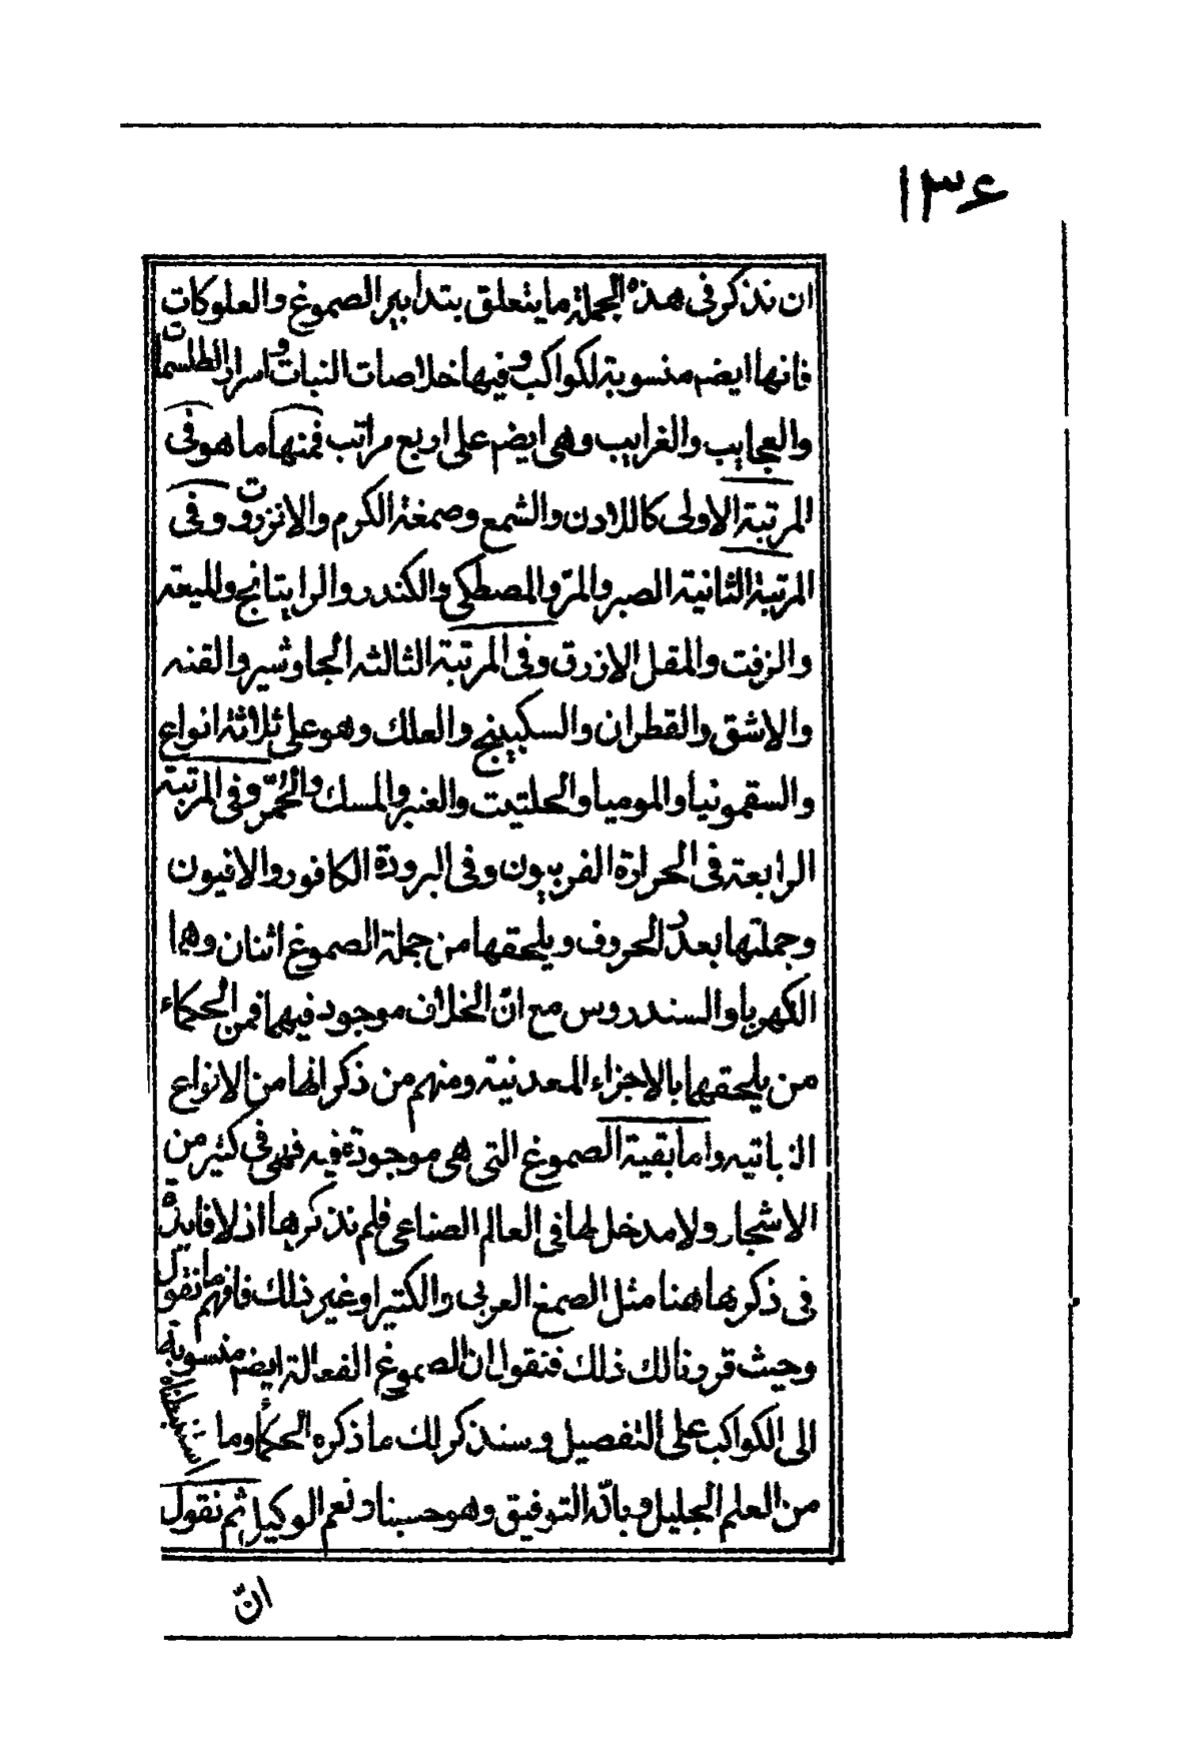 ١٣٤
ان نذكر فى هذه الجملة ما يتعلق بتدابير الصموغ والعلوكات
فانها ايضم منسوبة لكواكب وفيها خلاصات النبات واسرار الطلسمات
والعجايب والغرايب وهى ايضم على اربع مراتب فمنها ما هو فى
المرتبة الاولى كاللادن والشمع وصمغة الكرم والانزروت وفى
المرتبة الثانية الصبر والمرّ والمصطكى والكندر والراتيانج والميعة
والزفت والمقل الازرق وفى المرتبة الثالثه الجاوشير والقنه
والاشق والقطران والسكبينج والعلك وهو على ثلاثة انواع
والسقمونيا والموميا والحلتيت والعنبر والمسك والخمّر وفى المرتبة
الرابعة فى الحرارة الفربيون وفى البرودة الكافور والافيون
وجملتها بعدد الحروف ويلحقها من جملة الصموغ اثنان وهما
الكهربا والسندروس مع انّ الخلاف موجود فيهما فمن الحكماء
من يلحقهما بالاجزاء المعدنية ومنهم من ذكر انها من الانواع
النباتيه واما بقية الصموغ التى هى موجودة فيه فهى فى كثير من
الاشجار ولا مدخل لها فى العالم الصناعى فلم نذكرها اذ لا فايدة
فى ذكرها هنا مثل الصمغ العربى والكتيرا وغير ذلك فافهم ما نقول
وحيث قررنا لك ذلك فنقول ان الصموغ الفعالة ايضم منسوبة
الى الكواكب على التفصيل وسنذكر لك ما ذكره الحكماء وما استنبطناه
من العلم الجليل وبالله التوفيق وهو حسبنا ونعم الوكيل ثم نقول
انّ